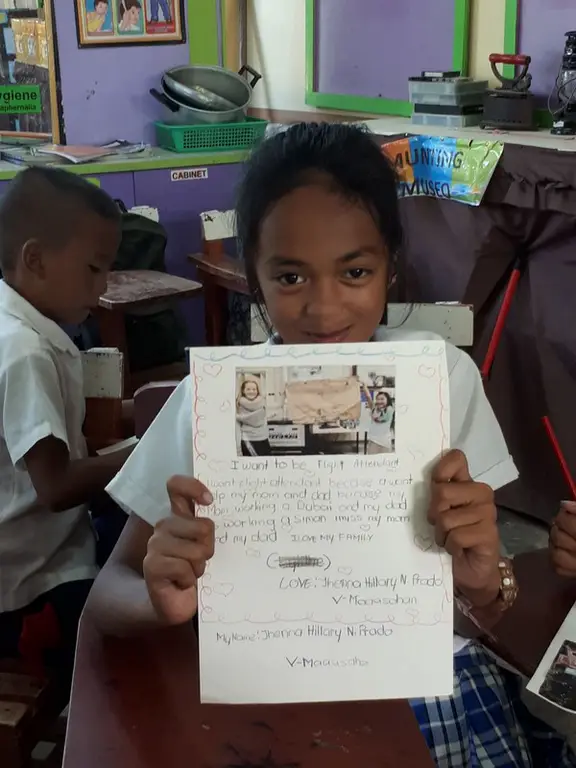 giene
aphernalia
CABINET
MUNTING
MUSEO
I want to be Flight Attendant
I want Flight attendant because I want
help my mom and dad because my
Mom working a Dubai and my dad
working a simon I miss my mom
and my dad I LOVE MY FAMILY
LOVE: Jhenna Hillary N. Prado
V-Maausahan
My Name: Jhenna Hillary N. Prado